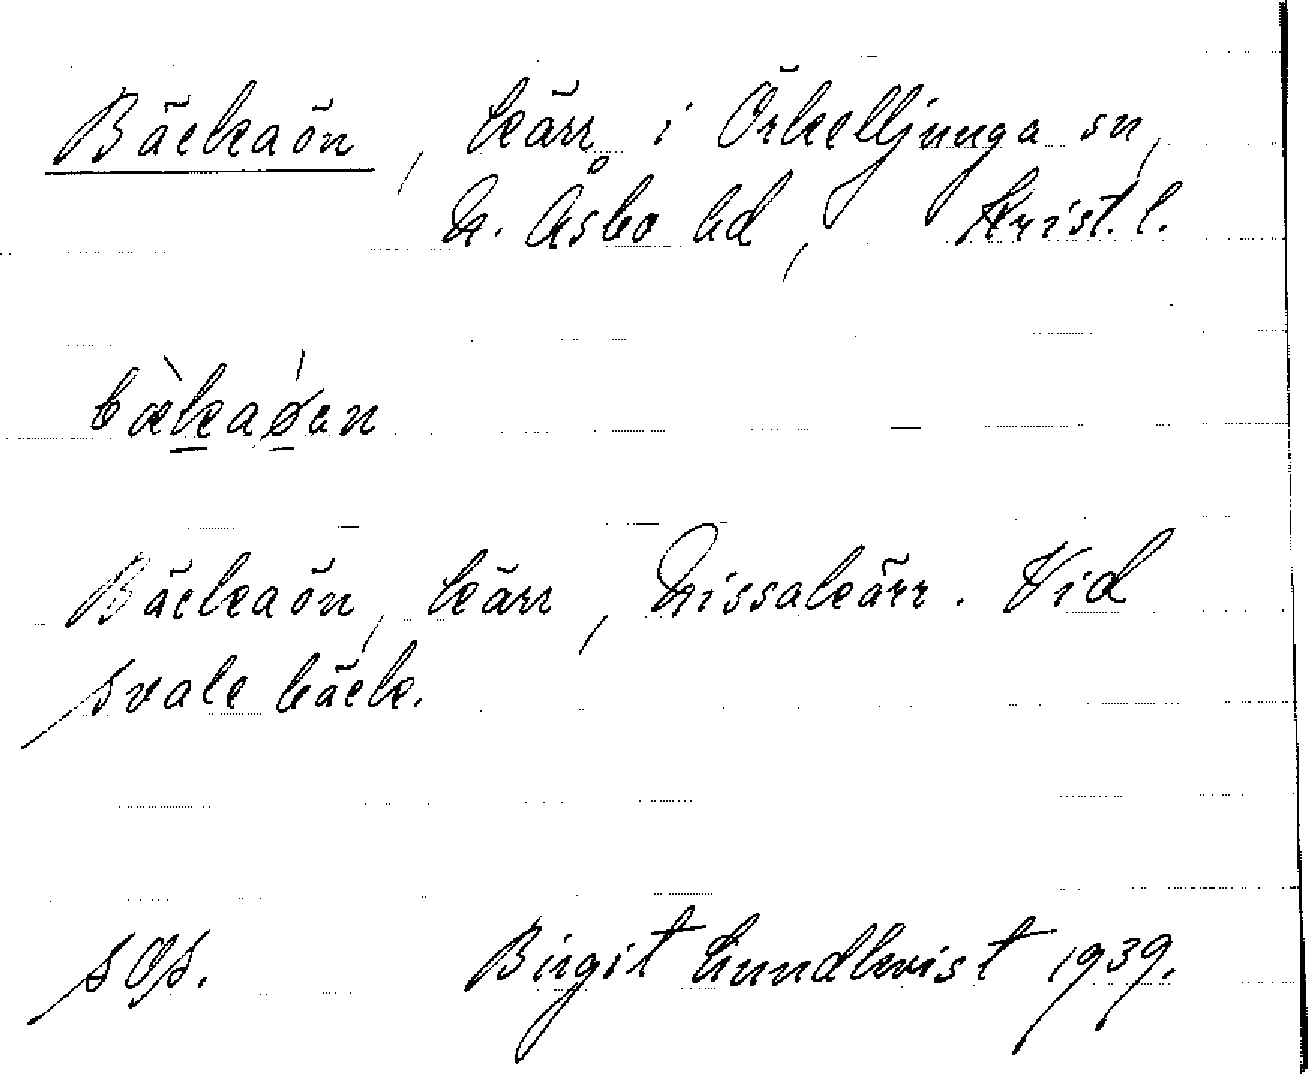 Bäckaön, kärr i Örkelljunga sn,
N. Åsbo hd, Krist. l.
bæ̀kaǿen
Bäckaön, kärr, Nissakärr. Vid
svale bäck.
Birgit Lundkvist 1939.